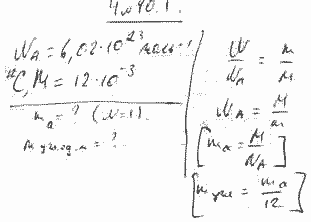 4 № 90.1.
N_A = 6,02·10^23 моль^-1
^12C, M = 12·10^-3
m_a = ? (N=1)
m у.г.ед.м = ?
N/N_A = m/M
N_A = M/m
[m_a = M/N_A]
[m = m_a/12]